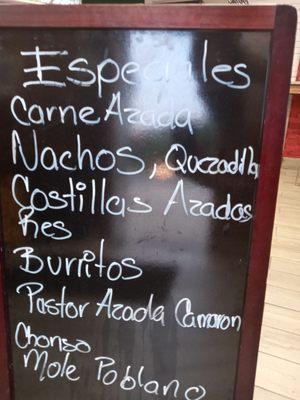 Especiales
Carne Azada
Nachos, Quezadilla
Costillas Azadas
Res
Burritos
Pastor Azada Camaron
Choriso
Mole Poblano